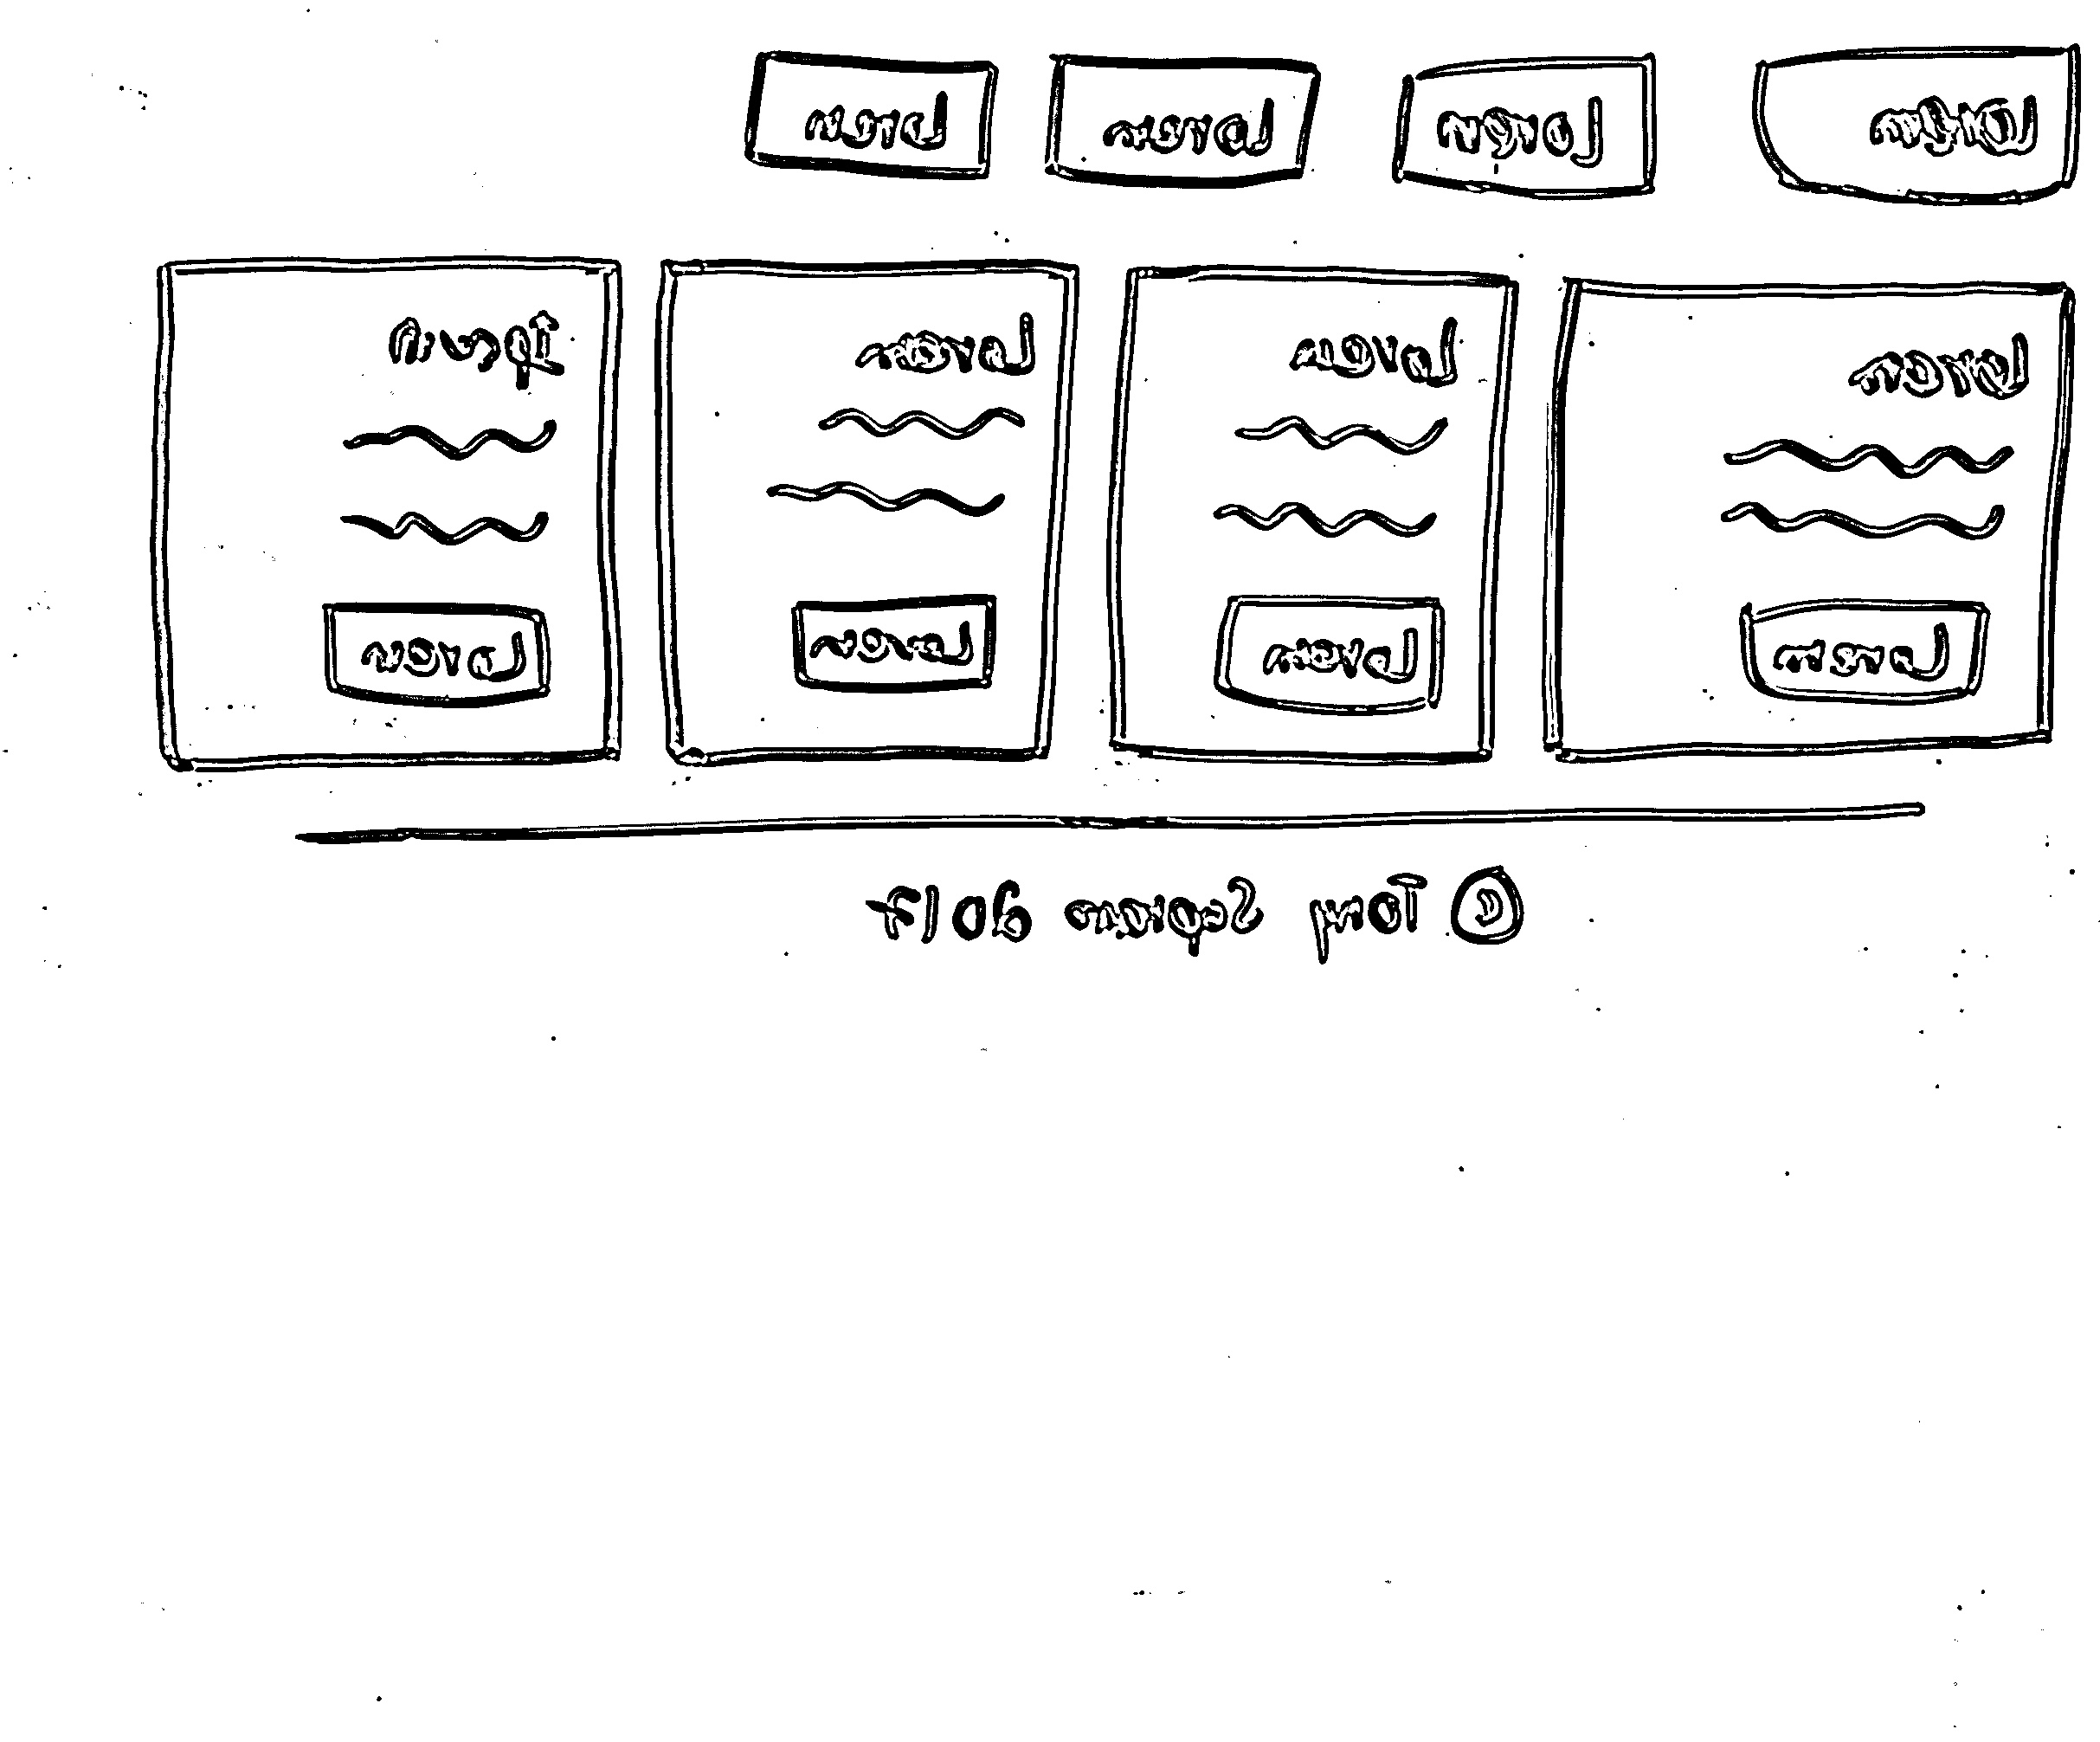 Lorem Lorem Lorem Lorem
Lorem Lorem Lorem Ipsum
Lorem Lorem Lorem Lorem
© Tony 2017